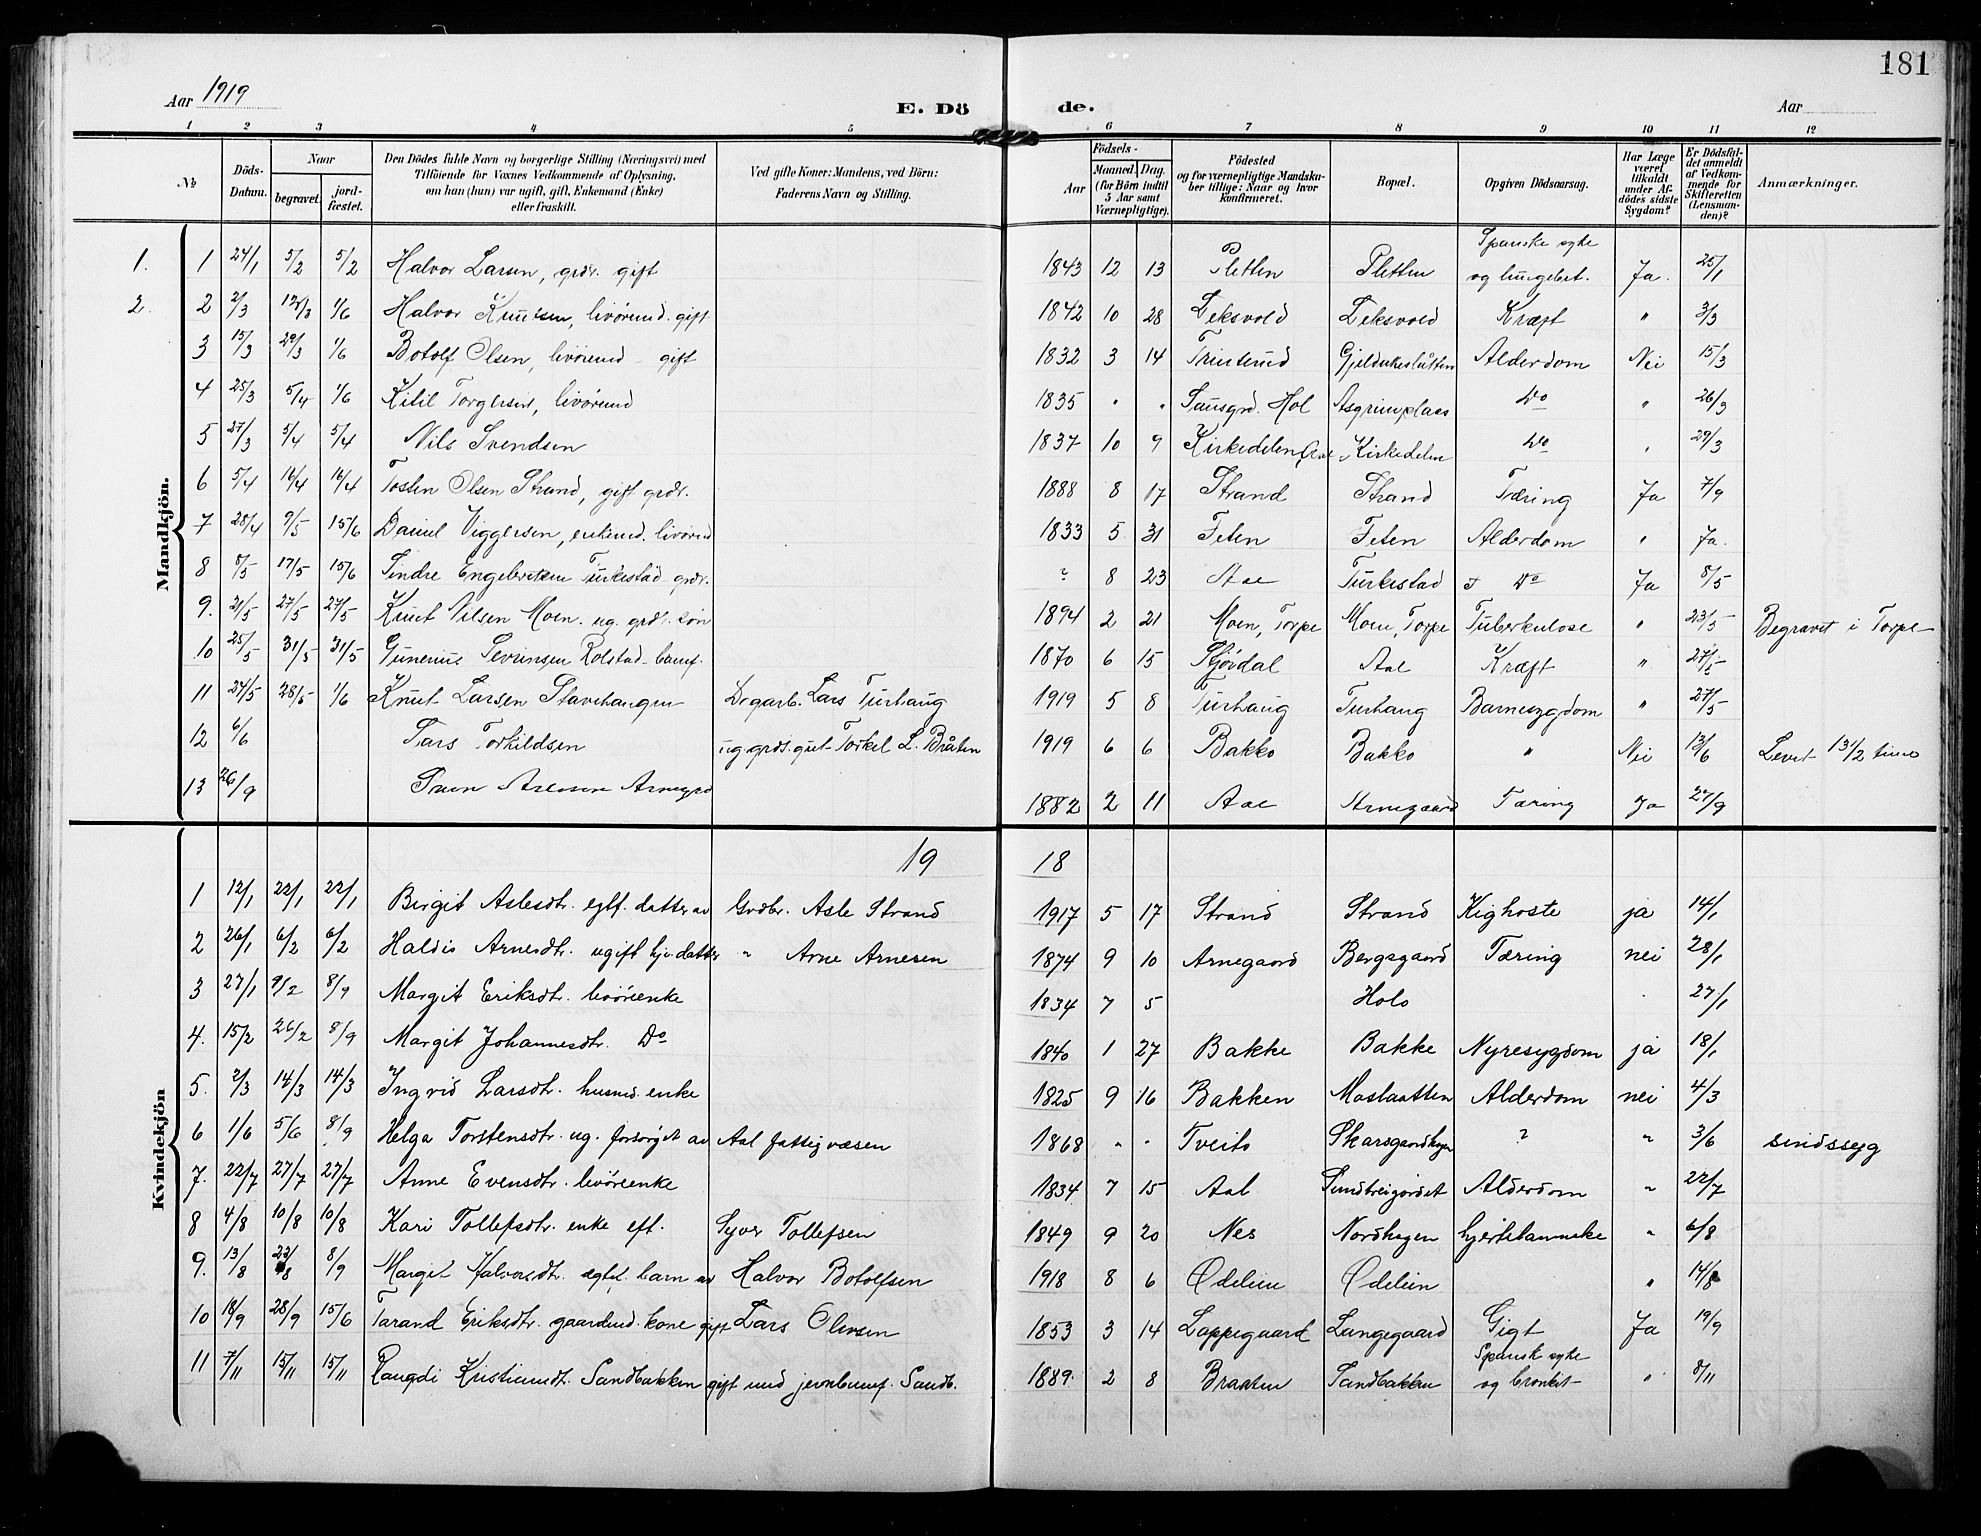 181
Aar 1919
E. Dö de.
Aar
1 2 3 4 5 6 7 8 9 10 11 12
№
Döds-Datum.
Naar
begravet.
jord-fæstet.
Den Dödes fulde Navn og borgerlige Stilling (Næringsvei) med
Tilföiende for Voxnes Vedkommende af Oplysning,
om han (hun) var ugift, gift, Enkemand (Enke)
eller fraskilt.
Ved gifte Koner: Mandens, ved Börn:
Faderens Navn og Stilling.
Födsels-
Aar
Maaned. Dag.
(for Börn indtil
5 Aar samt
Værnepligtige).
Födested
og for værnepligtige Mandska-
ber tillige: Naar og hvor
konfirmeret.
Bopæl.
Opgiven Dödsaarsag.
Har Læge
været
tilkaldt
under Af-
dödes sidste
Sygdom?
Er Dödsfal-
det anmeldt
af Vedkom-
mende for
Skifteretten
(Lensman-
den)?
Anmærkninger.
Mandkjön.
1. 1 24/1 5/2 5/2 Halvor Larsen, grdr. gift 1843 12 13 Pletten Pletten Spanske syke og lungebet. Ja. 25/1
2. 2 2/3 12/3 1/6 Halvor Knutsen, livörmd. gift 1842 10 28 Leksvold Leksvold Kræft " 3/3
3 15/3 29/3 1/6 Botolf Olsen, livörmd - gift 1832 3 14 Trintrud Gjeldokeslåtten Alderdom Nei 15/3
4 25/3 5/4 1/6 Kitil Torgersen, livörmd 1835 " " Sausgrd. Hol Asgrimplass Do " 26/3
5 27/3 5/4 5/4 Nils Svendsen 1837 10 9 Kirkedelen Kirkedelen Do " 29/3
6 5/4 16/4 16/4 Tosten Olsen Strand, gift grdr. 1888 8 17 Strand Strand Tæring Ja 7/9
7 28/4 9/5 15/6 Daniel Viggersen, enkemd. livörmd 1833 5 31 Feten Feten Alderdom " Ja.
8 8/5 17/5 15/6 Sindre Engebretsen Turkestad grdr. ? 8 23 Aae Turkestad Do Ja 8/5
9. 21/5 27/5 27/5 Knut Nilsen Moen. ug. grdr. sön 1894 2 21 Moen, Torpe Moen, Torpe Tuberkulose " 23/5 Begravet i Torpe
10 25/5 31/5 31/5 Gunerius Sevrinsen Rolstad banef. 1870 6 15 Stjördal Aal Kræft " 27/5
11 24/5 28/5 1/6 Knut Larsen Stavehaugen Dgarb. Lars Turhaug 1919 5 8 Turhaug Turhaug Barnesygdom " 27/5
12 6/6 Lars Torkildsen ug. grds.gut Torkel L. Bråten 1919 6 6 Bakko Bakko " Nei 13/6 Levet 13 1/2 time
13 26/9 1882 2 11 Aae Arnegaard Tæring Ja 27/9
Kvindekjön
19 18
1 12/1 22/1 22/1 Birgit Aslesdtr. egtf. datter av Grdbr. Asle Strand 1917 5 17 Strand Strand Kighoste ja 14/1
2 26/1 6/2 6/2 Haldis Arnesdtr. ugift hjv. datter " Arne Arnesen 1874 9 10 Arnegaard Bergsgaard Tæring nei 28/1
3 27/1 9/2 8/9 Margit Eriksdtr. livörenke 1834 7 5 Holo 27/1
4. 15/2 26/2 8/9 Margit Johannesdtr. Do 1840 1 27 Bakke Bakke Nyresygdom ja 18/1
5. 2/3 14/3 14/3 Ingrid Larsdtr. husmd. enke 1825 9 16 Bakken Moslaatten Alderdom nei 4/3
6 1/6 5/6 8/9 Helga Torstensdtr. ug. forsörget av Aal fattigvæsen 1868 " " Tveito Skarsgaardhagen ? " 3/6 sindssyg
7. 22/7 27/7 27/7 Anne Evensdtr. livörenke 1834 7 15 Aal Sundbreigördet Alderdom " 22/7
8 4/8 10/8 10/8 Kari Tollefsdtr. enke eft. Syver Tollefsen 1849 9 20 Nes Nordhagen hjertelammelse " 6/8
9. 13/8 23/8 8/9 Margit Halvorsdtr. ægtef. barn av Halvor Botolfsen 1918 8 6 Ødeliin Ødeliin " 14/8
10 18/9 28/9 15/6 Tarand Eriksdtr. gaardmd. kone gift Lars Olevsen 1853 3 14 Lappegaard Lungegaard Gigt Ja 19/9
11 7/11 15/11 15/11 Raugdi Kristiandtr. Sandbakken gift med jernbanef. Sandb. 1889. 2 8 Braaten Sandbakken Spansk syke og bronkit- " 8/11